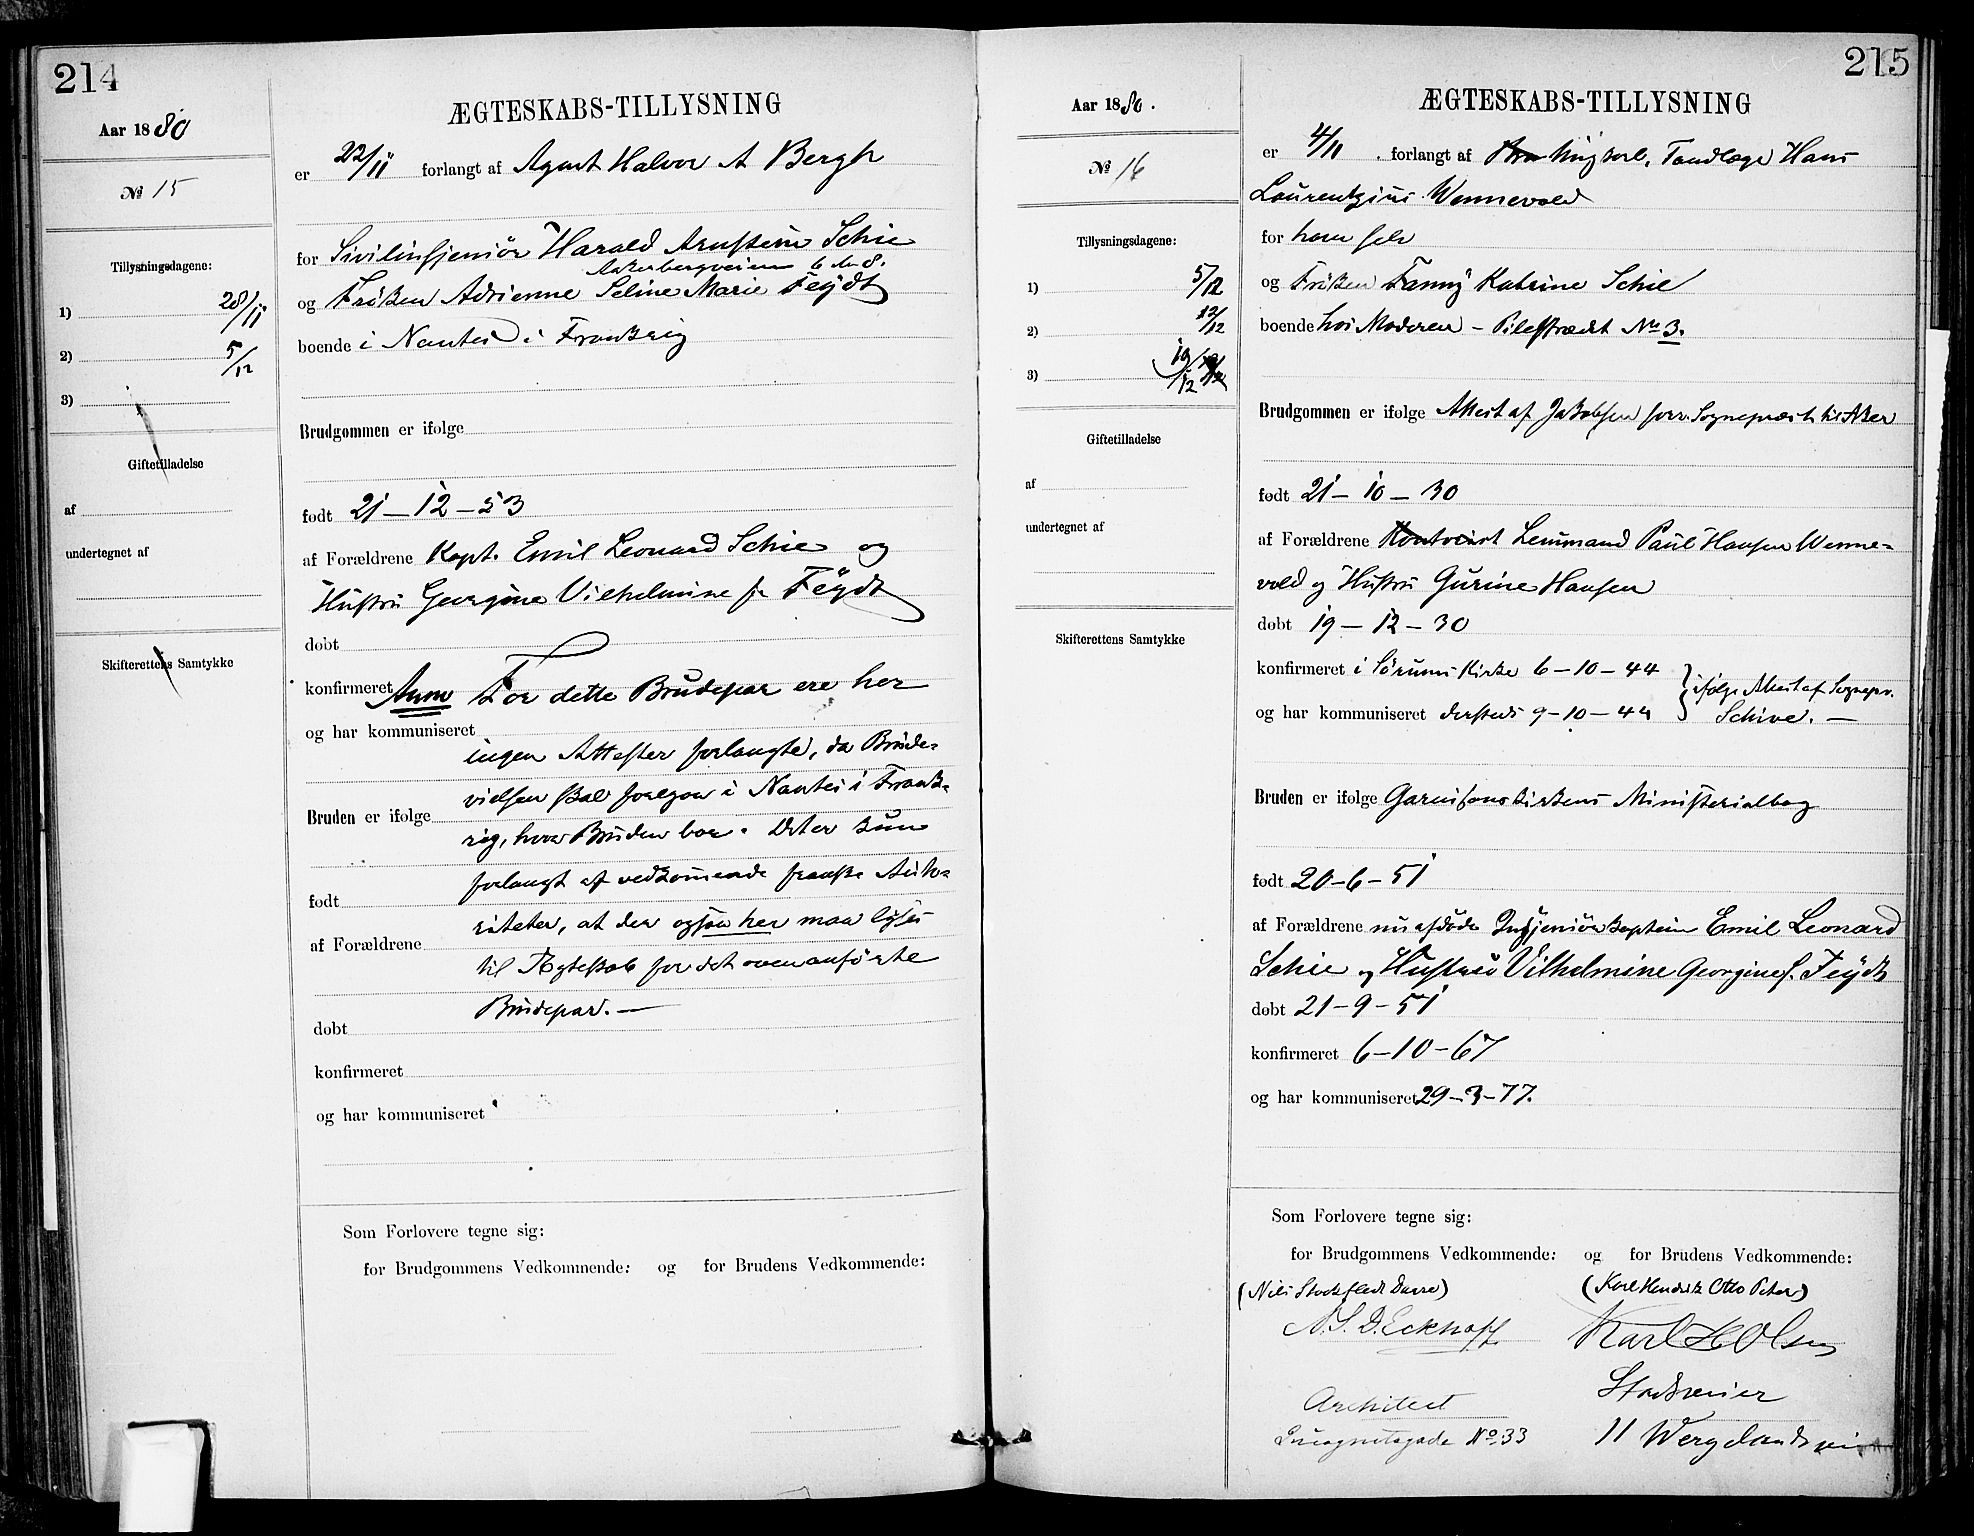 214
ÆGTESKABS-TILLYSNING
Aar 1880
№ 15
er 22/11 forlangt af Agent Halvor A Bergh
for Sivilinsjeniör Harald Arnstein Schie
Akerbergveien 6 No 8.
og Fröken Adrienne Seline Marie Feÿdt
boende i Nantes i Frankrig
Tillysningsdagene:
1) 28/11
2) 5/12
3)
Giftetilladelse
af
undertegnet af
Skifterettens Samtykke
Brudgommen er ifølge
født 21 – 12 – 53
af Forældrene Kapt. Emil Leonard Schie og
Hustru Georgine Vilhelmine f. Feÿdt
døbt
konfirmeret Anm For dette Brudepar ere her
og har kommuniseret
ingen Attester forlangte, da Brude-
vielsen skal foregaa i Nantes i Frank-
Bruden er ifølge
rig, hvor Bruden bor. Det er kun
forlangt af vedkommende franske Auto-
født
riteter, at der ogsaa her maa lyses
af Forældrene
til Ægteskab for det ovenanförte
Brudepar. —
døbt
konfirmeret
og har kommuniseret
Som Forlovere tegne sig:
for Brudgommens Vedkommende: og for Brudens Vedkommende:
215
ÆGTESKABS-TILLYSNING
Aar 1880.
№ 16
er 4/11. forlangt af Ungkarl, Tandlæge Hans
Laurentzius Wennevold
for ham selv
og Fröken Fanny Katrine Schie
boende hos Moderen – Pilestrædet No 3.
Tillysningsdagene:
1) 5/12
2) 12/12
3) 19/12
Giftetilladelse
af
undertegnet af
Skifterettens Samtykke
Brudgommen er ifølge Attest af Jakobsen forr. Sognepræst til Aker
født 21 – 10 – 30
af Forældrene Kontorist Lensmand Paul Hansen Wenne-
vold og Hustru Gurine Hansen
døbt 19 – 12 – 30
konfirmeret i Sörums Kirke 6 – 10 – 44
og har kommuniseret dersteds 9 – 10 – 44
ifølge Attest af Sognepr.
Schive. —
Bruden er ifølge Garnisonskirkens Ministerialbog
født 20 – 6 – 51
af Forældrene nu afdöde Ingeniörkaptein Emil Leonard
Schie og Hustru Vilhelmine Georgine f. Feÿdt
døbt 21 – 9 – 51
konfirmeret 6 – 10 – 67
og har kommuniseret 29 – 3 – 77.
Som Forlovere tegne sig:
for Brudgommens Vedkommende: og for Brudens Vedkommende:
(Nils Stockfleth Darre) (Karl Hendrik Otto Peter)
N. S. D. Eckhoff Karl H Olsen
Architect
No 33
11 Wergelandsvei